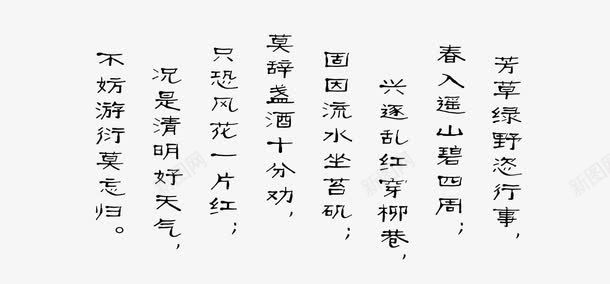 芳草绿野恣行事,
春入遥山碧四周;
兴逐乱红穿柳巷,
固因流水坐苔矶;
莫辞盏酒十分劝,
只恐风花一片红;
况是清明好天气,
不妨游衍莫忘归。